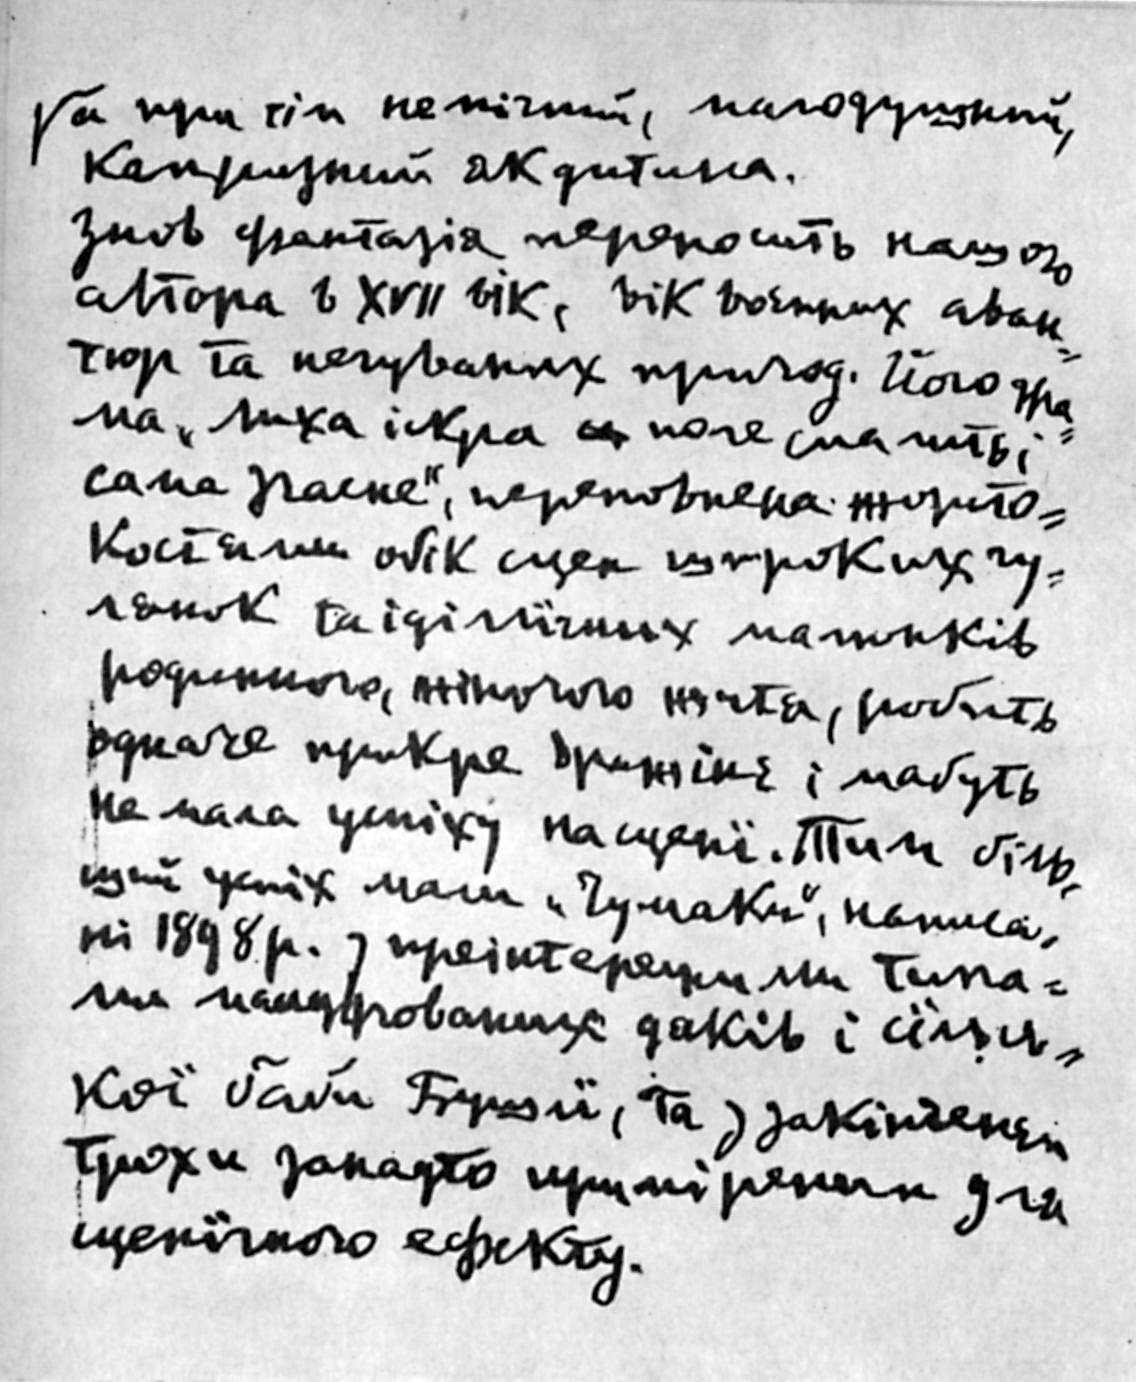 та при тім немічний, малодушний,
капризний як дитина.
Знов фантазія переносить нашого
автора в XVII вік, вік воєнних аван=
тюр та нечуваних пригод. Його дра=
ма „Лиха іскра поле спалить і
сама згасне", переповнена жорсто=
костями обік сцен широких гу=
лянок та іділлїчних малюнків
родинного, жіночого життя, робить
одначе прикре вражінє і мабуть
не мала успіху на сценї. Тим біль=
ший успіх мали „Чумаки", написа=
ні 1898 р. з преінтересними типа=
ми мандрованих дяків і сїльсь=
кої баби Бушлї, та з закінченєм
трохи занадто примиреним для
сценїчного ефекту.